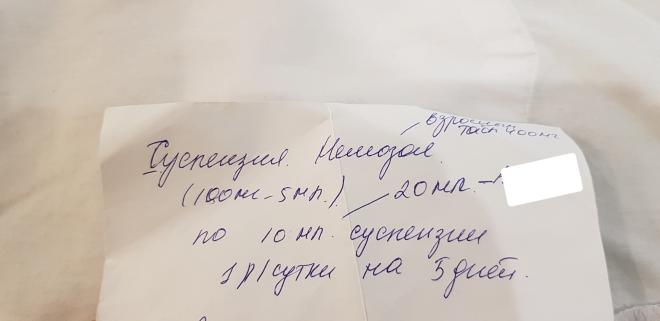 взрослым
табл 400мг
Суспензия Немозол.
(100мг-5мл.) 20мл.-
по 10 мл. суспензии
1 р/сутки на 5 дней.